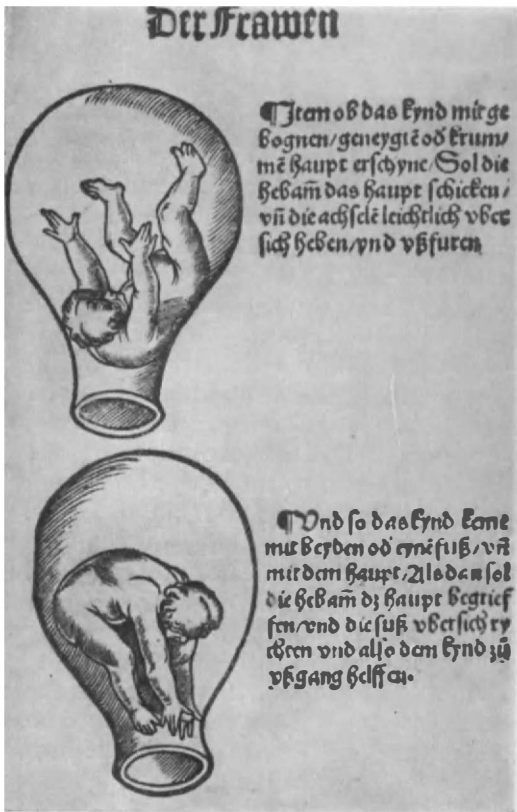 Der Frawen
¶Item ob das kynd mit ge
bognen/geneygtē od krum⸗
mē haupt erschyne/Sol die
hebam̄ das haupt schicken/
vn̄ die achselē leichtlich vber
sich heben/vnd vßfuren
¶Vnd so das kynd keme
mit beyden od eynē fuß/vn̄
mit dem haupt/Als dan sol
die hebam̄ dz haupt begrieff
fen/vnd die fuß vbersich ry
chten vnd also dem kynd zů
vßgang helffen.